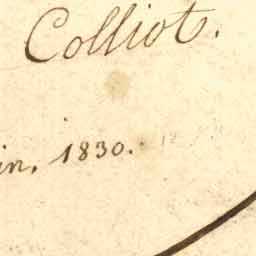 Colliot.
in. 1830.